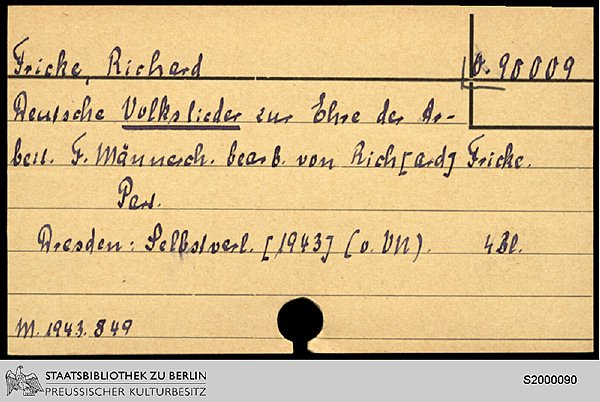 Fricke, Richard
O. 90009
Deutsche Volkslieder zur Ehre der Ar-
beit. F. Männerch. bearb. von Rich[ard] Fricke.
Part.
Dresden: Selbstverl. [1943] (o. VN). 4 Bl.
M. 1943. 849
STAATSBIBLIOTHEK ZU BERLIN
PREUSSISCHER KULTURBESITZ
S2000090